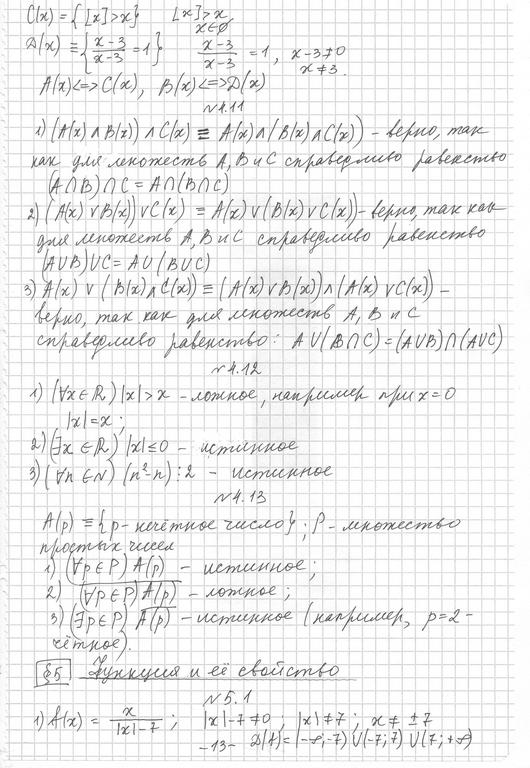 C(x) = { [x] > x }   [x] > x
x ∈ ∅
D(x) ≡ { (x-3)/(x-3) = 1 }   (x-3)/(x-3) = 1, x-3 ≠ 0
x ≠ 3.
A(x) <=> C(x), B(x) <=> D(x)
№4.11
1) (A(x) ∧ B(x)) ∧ C(x) ≡ A(x) ∧ (B(x) ∧ C(x)) – верно, так
как для множеств A, B и C справедливо равенство
(A∩B)∩C = A∩(B∩C)
2) (A(x) ∨ B(x)) ∨ C(x) ≡ A(x) ∨ (B(x) ∨ C(x)) – верно, так как
для множеств A, B и C справедливо равенство
(A∪B)∪C = A∪(B∪C)
3) A(x) ∨ (B(x) ∧ C(x)) ≡ (A(x) ∨ B(x)) ∧ (A(x) ∨ C(x)) –
верно, так как для множеств A, B и C
справедливо равенство: A∪(B∩C) = (A∪B)∩(A∪C)
№4.12
1) (∀x∈R) |x| > x – ложное, например при x = 0
|x| = x;
2) (∃x∈R) |x| ≤ 0 – истинное
3) (∀n∈N) (n²-n)⋮2 – истинное
№4.13
A(p) ≡ {p – нечётное число}; P – множество
простых чисел
1) (∀p∈P) A(p) – истинное;
2) (∀p∈P) A(p) – ложное;
3) (∃p∈P) A(p) – истинное (например, p=2 –
чётное).
§5 Функция и её свойство
№5.1
1) A(x) = x/(|x|-7); |x|-7 ≠ 0; |x| ≠ 7; x ≠ ±7
-13- D(A) = (-∞;-7)∪(-7;7)∪(7;+∞)